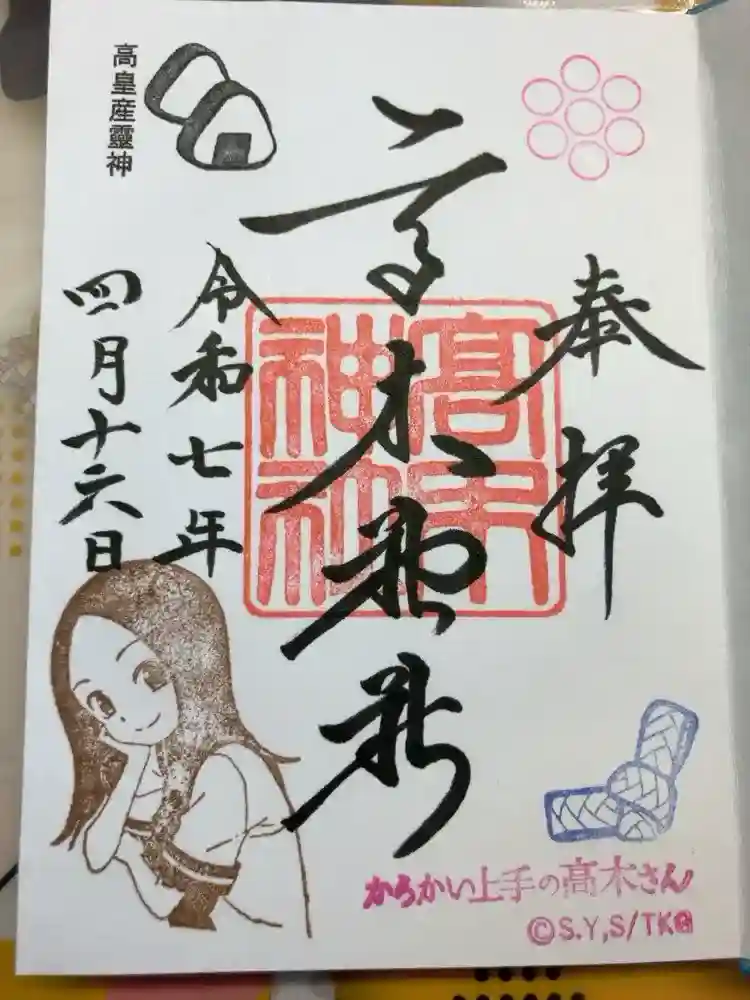 奉拝
高木神社
高木神社
令和七年
四月十六日
高皇産靈神
からかい上手の高木さん
©S.Y,S/TKG